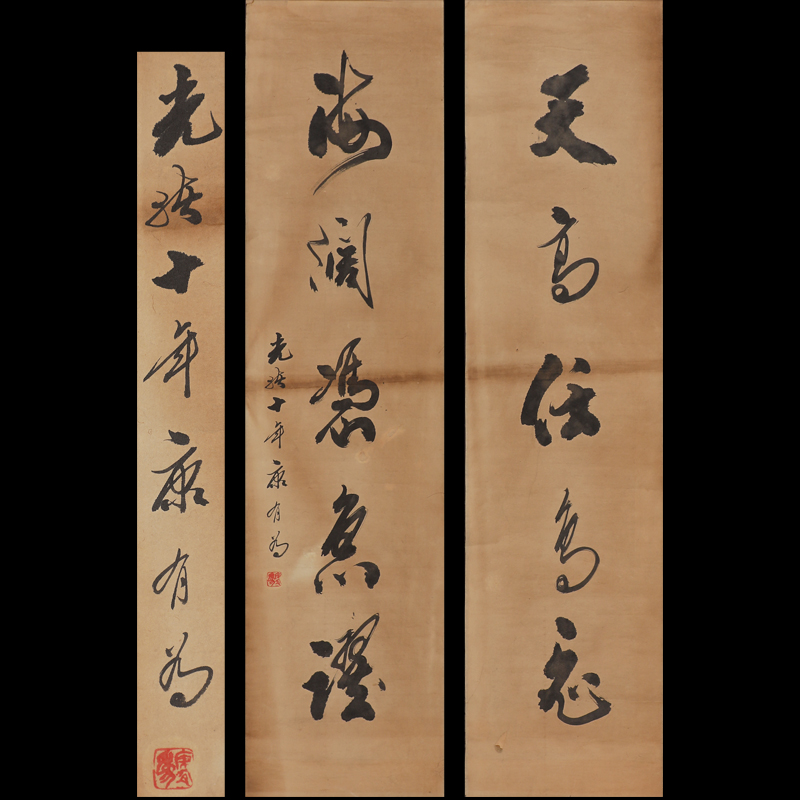 天高任鳥飛
海闊憑魚躍
光緒十年康有為
光緒十年康有為